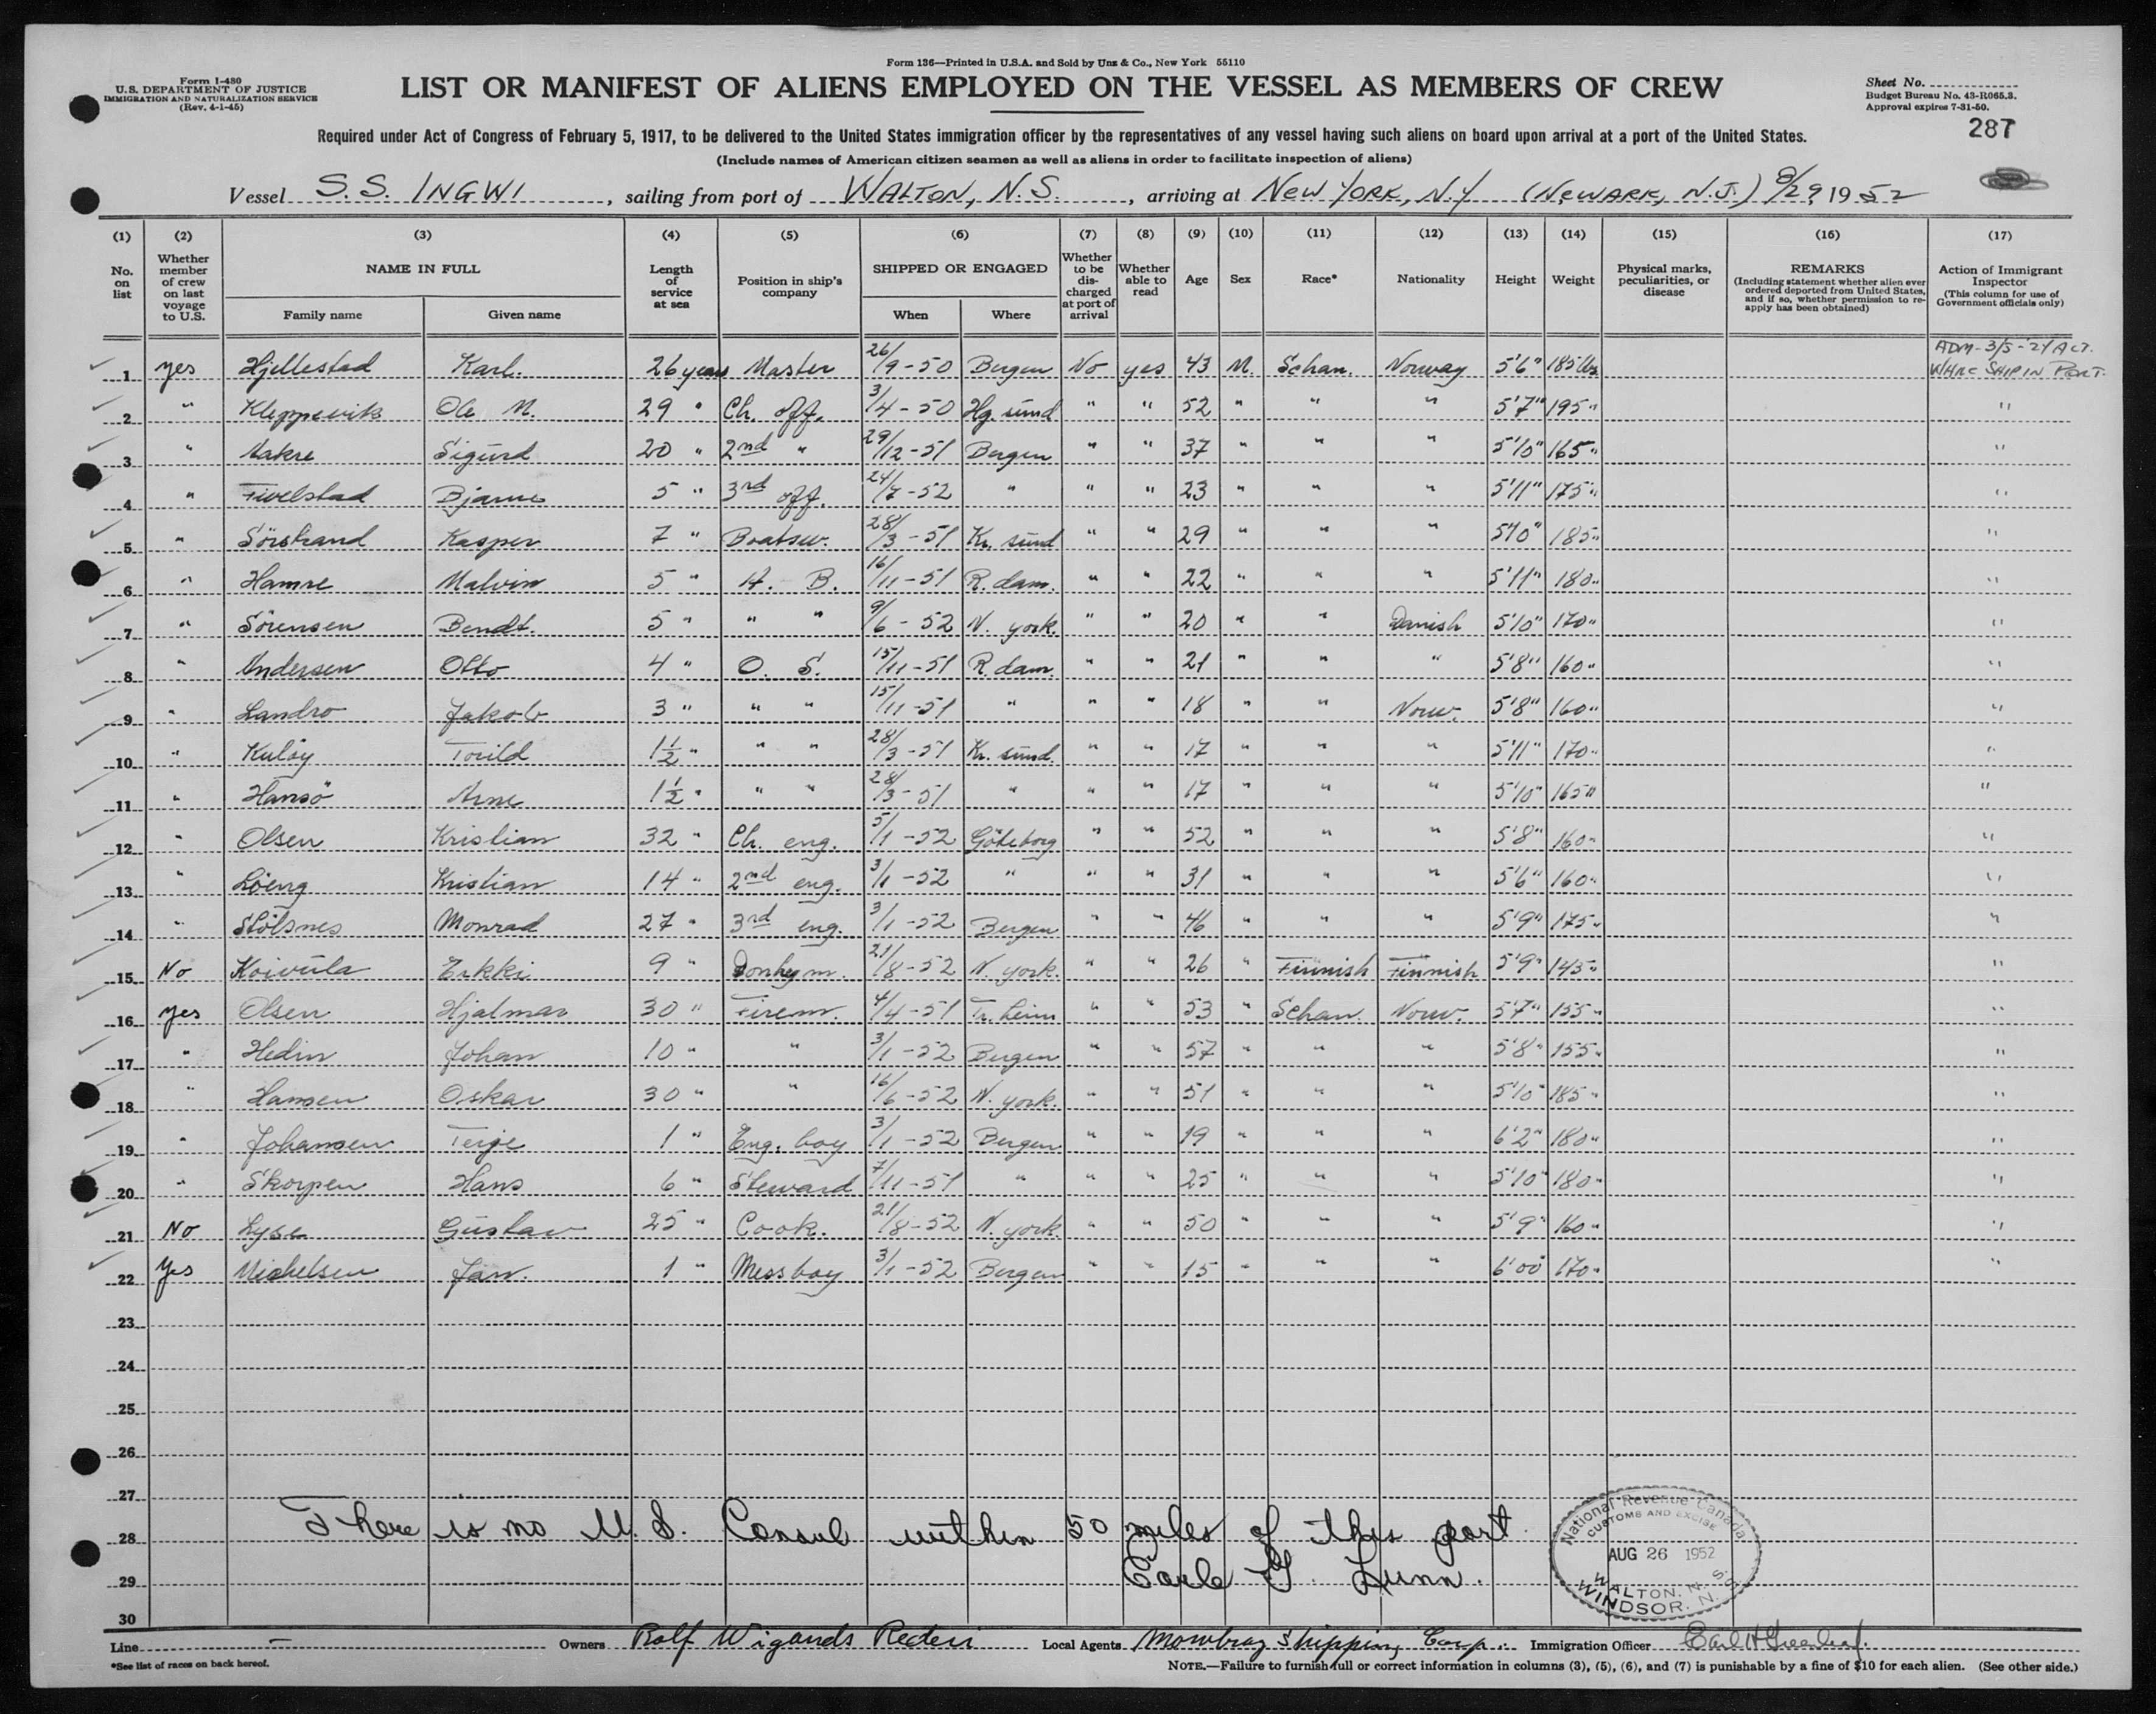 Form 136—Printed in U.S.A. and Sold by Unz & Co., New York 55110
Form I-480
U.S. DEPARTMENT OF JUSTICE
IMMIGRATION AND NATURALIZATION SERVICE
(Rev. 4-1-45)
LIST OR MANIFEST OF ALIENS EMPLOYED ON THE VESSEL AS MEMBERS OF CREW
Sheet No.
Budget Bureau No. 43-R065.3.
Approval expires 7-31-50.
287
Required under Act of Congress of February 5, 1917, to be delivered to the United States immigration officer by the representatives of any vessel having such aliens on board upon arrival at a port of the United States.
(Include names of American citizen seamen as well as aliens in order to facilitate inspection of aliens)
Vessel S.S. INGWI, sailing from port of WALTON, N.S., arriving at NEW YORK, N.Y (NEWARK, N.J.) 8/29, 1952
(1) (2) (3) (4) (5) (6) (7) (8) (9) (10) (11) (12) (13) (14) (15) (16) (17)
No. on list
Whether member of crew on last voyage to U.S.
NAME IN FULL
Family name Given name
Length of service at sea
Position in ship's company
SHIPPED OR ENGAGED
When Where
Whether to be discharged at port of arrival
Whether able to read
Age Sex Race* Nationality Height Weight
Physical marks, peculiarities, or disease
REMARKS
(Including statement whether alien ever ordered deported from United States, and if so, whether permission to reapply has been obtained)
Action of Immigrant Inspector
(This column for use of Government officials only)
1 yes Hjellestad Karl. 26 years Master 26/9-50 Bergen No yes 43 M. Schan. Norway 5'6" 185 lbs ADM-3/5-24 ACT. WHILE SHIP IN PORT.
2 " Kleppevik Ole M. 29 " Ch. off. 3/4-50 Hg. sund " " 52 " " " 5'7" 195 " "
3 " Aakre Sigurd 20 " 2nd " 29/12-51 Bergen " " 37 " " " 5'10" 165 " "
4 " Fivelstad Bjarne 5 " 3rd off. 24/7-52 " " " 23 " " " 5'11" 175 " "
5 " Sörstrand Kasper 7 " Boatsw. 28/3-51 Kr. sund " " 29 " " " 5'10" 185 " "
6 " Hamre Malvin 5 " A. B. 16/11-51 R. dam. " " 22 " " " 5'11" 180 " "
7 " Sörensen Bendt. 5 " " " 9/6-52 N. york. " " 20 " " Danish 5'10" 170 " "
8 " Andersen Otto 4 " O. S. 15/11-51 R. dam. " " 21 " " " 5'8" 160 " "
9 " Landro Jakob 3 " " " 15/11-51 " " " 18 " " Norw. 5'8" 160 " "
10 " Kulöy Torild 1½ " " " 28/3-51 Kr. sund. " " 17 " " " 5'11" 170 " "
11 " Hansö Arne 1½ " " " 28/3-51 " " " 17 " " " 5'10" 165 " "
12 " Olsen Kristian 32 " Ch. eng. 5/1-52 Göteborg " " 52 " " " 5'8" 160 " "
13 " Löeng Kristian 14 " 2nd eng. 3/1-52 " " " 31 " " " 5'6" 160 " "
14 " Stölsnes Monrad 27 " 3rd eng. 3/1-52 Bergen " " 46 " " " 5'9" 175 " "
15 No Koivula Erkki 9 " Donkym. 21/8-52 N. york. " " 26 " Finnish Finnish 5'9" 145 " "
16 yes Olsen Hjalmar 30 " Firem. 4/4-51 Tr. heim " " 53 " Schan. Norw. 5'7" 155 " "
17 " Hedin Johan 10 " " 3/1-52 Bergen " " 57 " " " 5'8" 155 " "
18 " Hansen Oskar 30 " " 16/6-52 N. york. " " 51 " " " 5'10" 185 " "
19 " Johansen Terje 1 " Eng. boy 3/1-52 Bergen " " 19 " " " 6'2" 180 " "
20 " Skorpen Hans 6 " Steward 7/11-51 " " " 25 " " " 5'10" 180 " "
21 No Lyse Gustav 25 " Cook. 21/8-52 N. york. " " 50 " " " 5'9" 160 " "
22 yes Michelsen Jan. 1 " Messboy 3/1-52 Bergen " " 15 " " " 6'00 170 " "
23
24
25
26
27
28
29
30
There is no U. S. Consul within 50 miles of this port.
Earle G. Lunn.
National Revenue Canada
CUSTOMS AND EXCISE
AUG 26 1952
WALTON, N. S.
WINDSOR, N. S.
Line - Owners Rolf Wigands Rederi Local Agents Mowbray Shipping Corp. Immigration Officer Earl H Greenleaf.
*See list of races on back hereof.
NOTE.—Failure to furnish full or correct information in columns (3), (5), (6), and (7) is punishable by a fine of $10 for each alien. (See other side.)